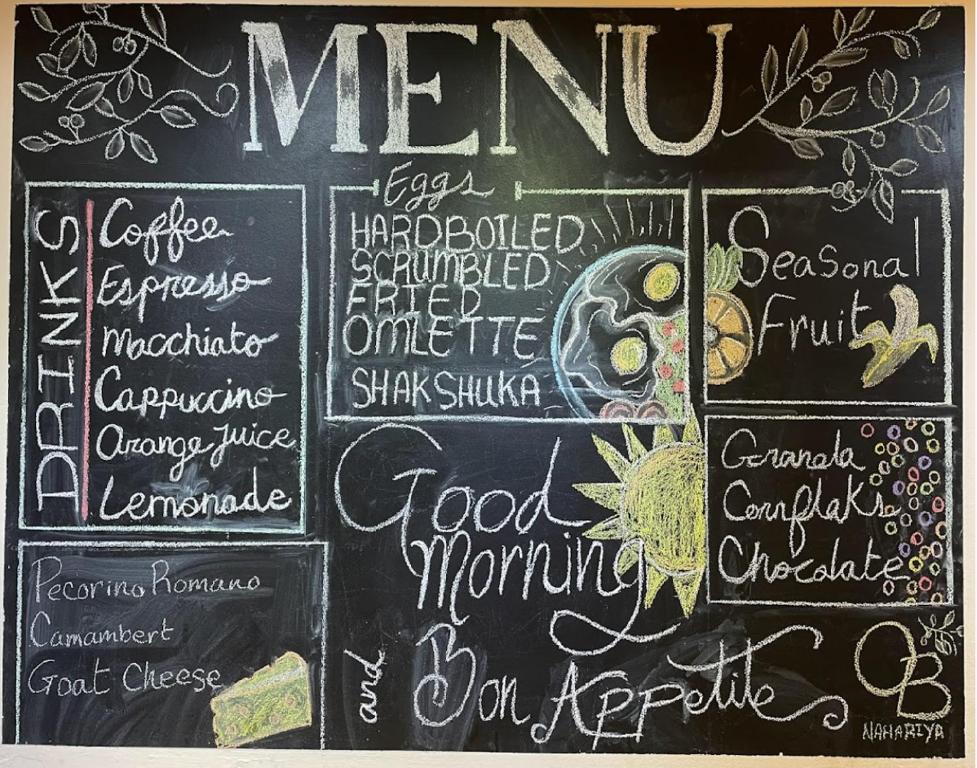 MENU
DRINKS
Coffee
Espresso
Macchiato
Cappuccino
Orange Juice
Lemonade
Eggs
HARDBOILED
SCRUMBLED
FRIED
OMLETTE
SHAKSHUKA
Seasonal
Fruit
Granola
Cornflaks
Chocolate
Pecorino Romano
Camambert
Goat Cheese
Good
Morning
and
Bon Appetite
OB
NAHARIYA